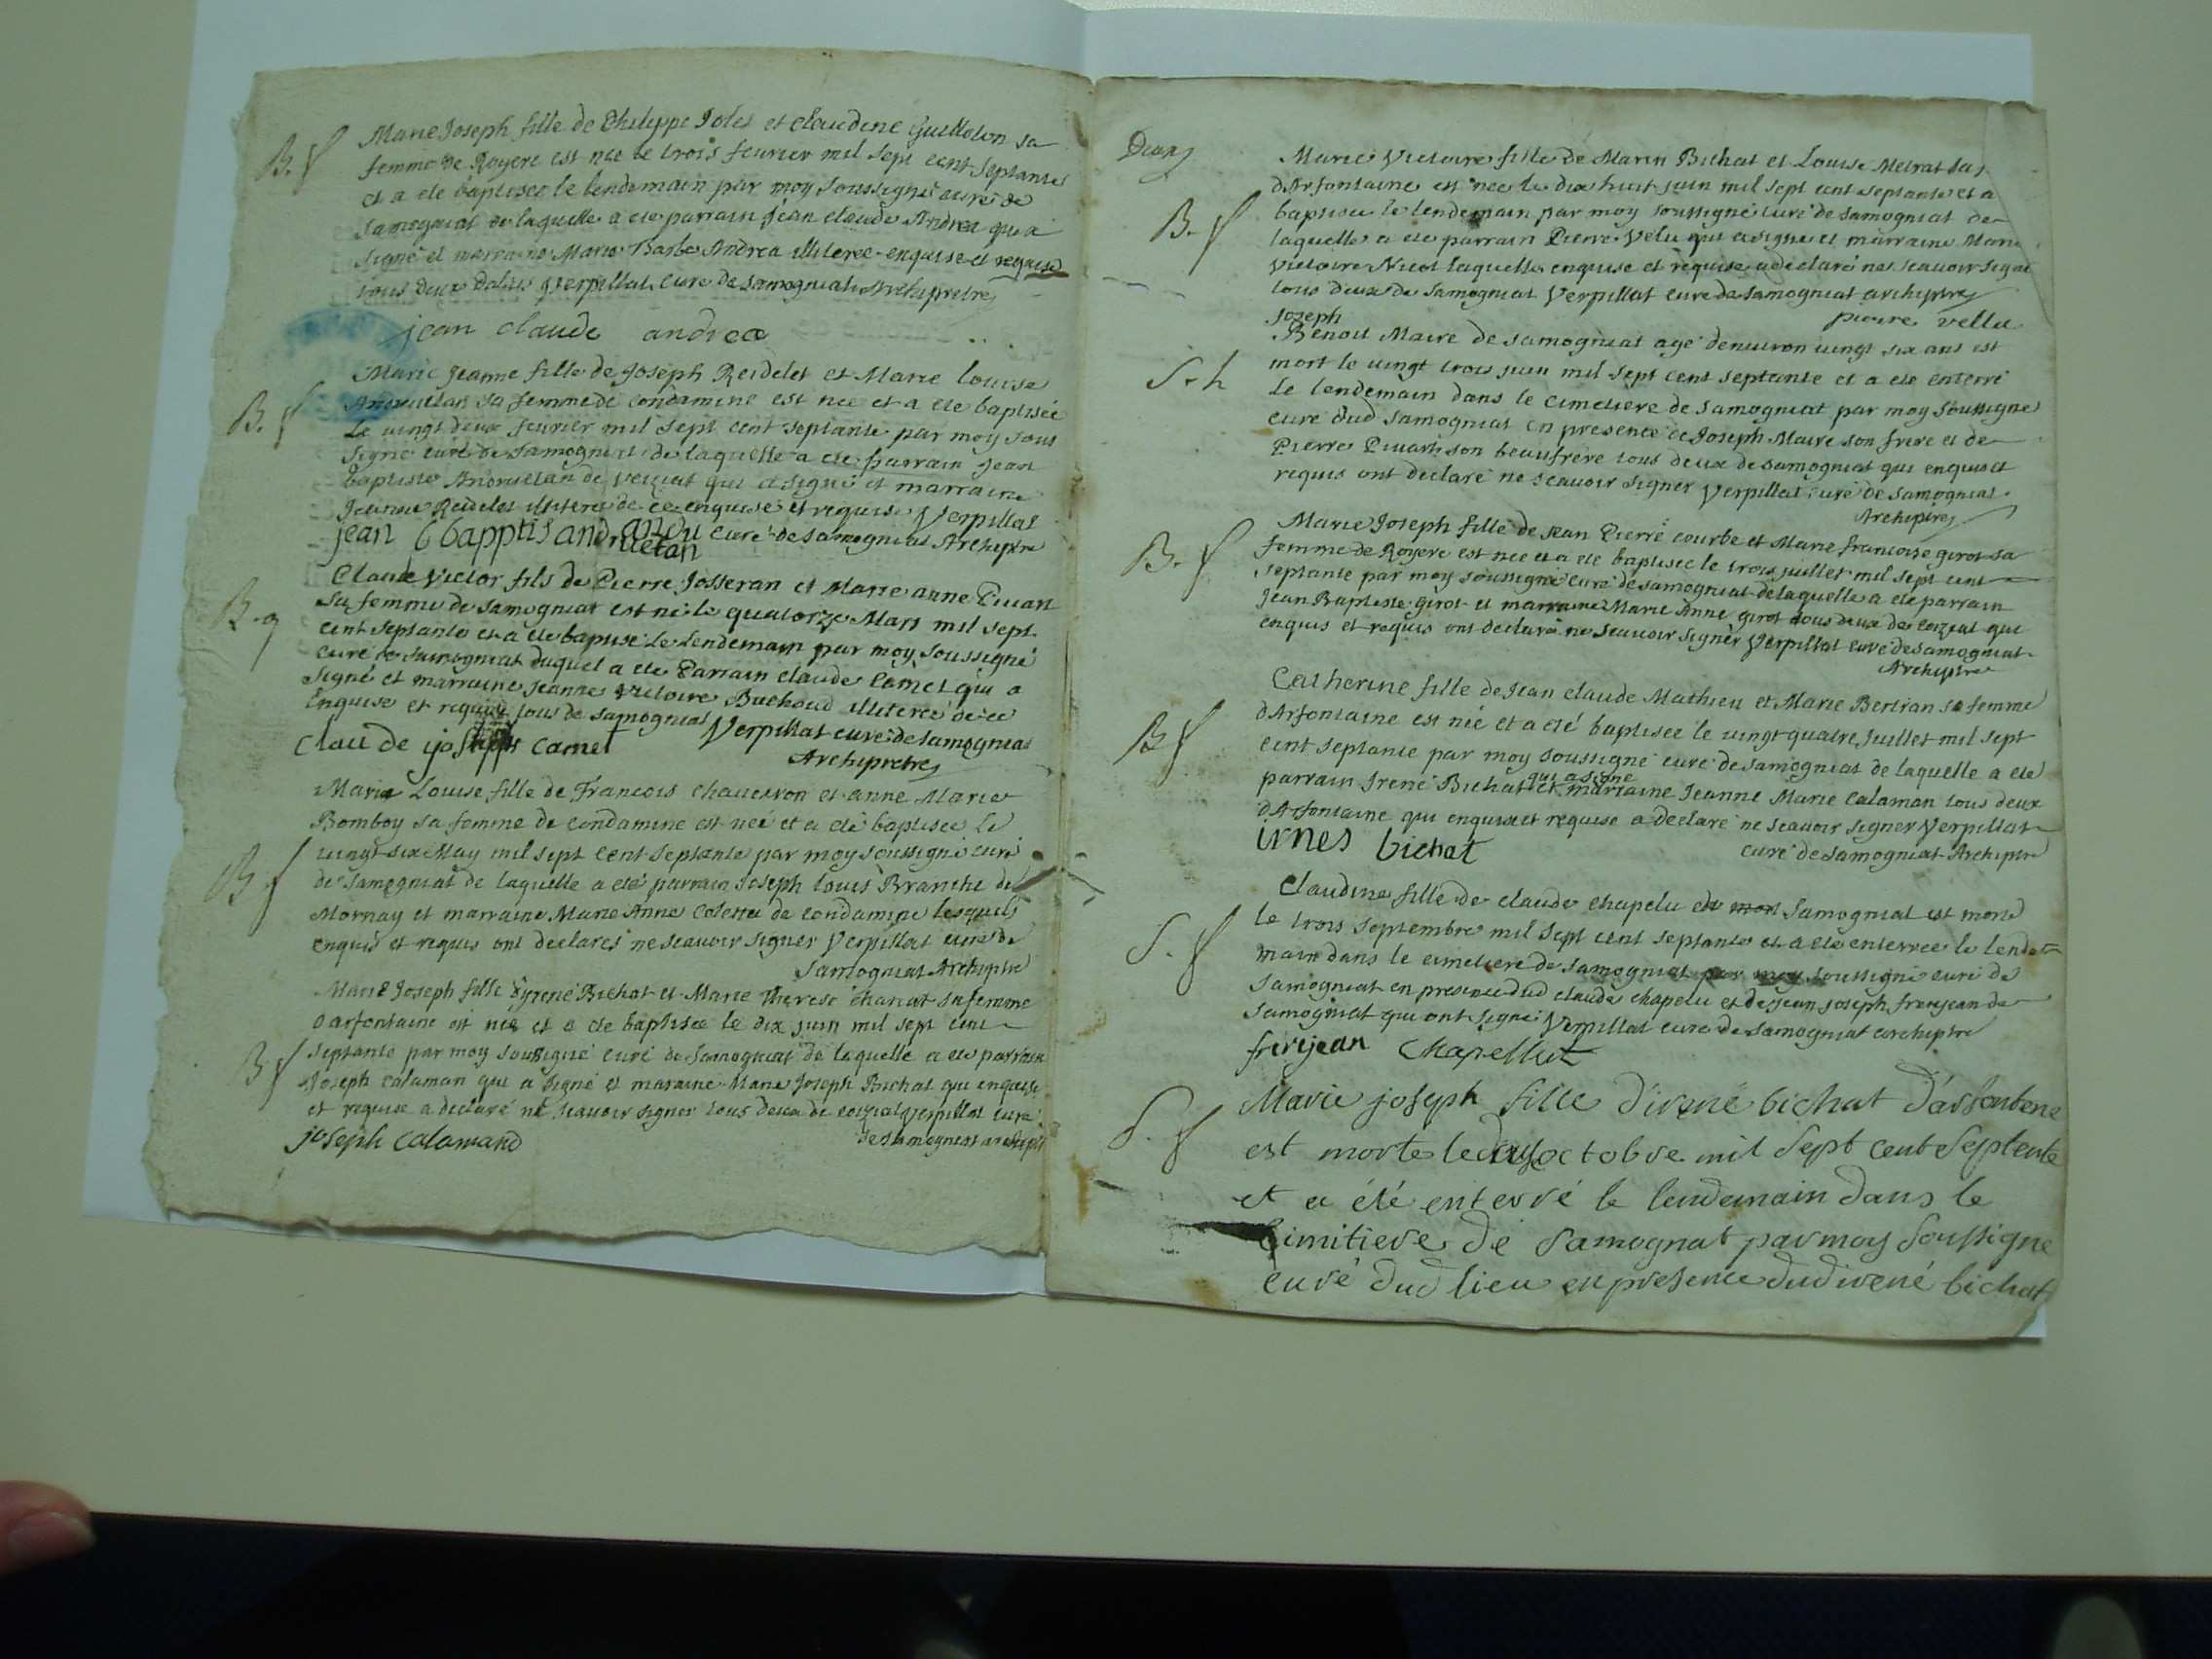 B. f
Marie Joseph fille de Philippe Joles et Claudine Guillolon sa
femme de Royere est née le trois fevrier mil sept cent septante
et a été baptisée le lendemain par moy soussigné curé de
Samogniat de laquelle a ete parrain jean claude Andrea qui a
signé et marraine Marie Barbe Andrea illiteree enquise et requise
tous deux Verpillat curé de Samogniat Archipretre
jean claude andrea
B. f
Marie Jeanne fille de Joseph Reidelet et Marie louise
Andruetan sa femme de Condamine est née et a ete baptisée
Le vingt deux fevrier mil sept cent septante par moy sous
signé curé de Samogniat de laquelle a ete parrain Jean
baptiste Andruetan de veiziat qui a signé et marraine
Jeanne Reidelet illiteré de ce enquise et requise Verpillat
curé de Samogniat Archiptre
jean bbapptis andruetan
B. g
Claude Victor fils de Pierre Josseran et Marie anne Pivart
Sa femme de Samogniat est né le quatorze Mars mil sept
cent septante et a ete baptisé Le Lendemain par moy soussigné
curé de Samogniat duquel a ete Parrain claude Camet qui a
signé et marraine jeanne Victoire Buchoud illiterée de ce
Enquise et requise tous de Samogniat Verpillat curé de Samogniat
Archipretre
clau de joseph camet
B f
Marie Louise fille de Francois chaveyron et anne Marie
Bomboy sa femme de Condamine est née et a eté baptisée le
vingt six May mil sept cent septante par moy soussigné curé
de Samogniat de laquelle a eté parrain Joseph Louis Branche de
Mornay et marraine Marie Anne Coletta de condamine lesquels
enquis et requis ont declarés ne sceavoir signer Verpillat curé de
Samogniat Archiptre
B f
Marie Joseph fille d'yrené Bichat et Marie Therese chanat sa femme
d'arfontaine est née et a ete baptisée le dix juin mil sept cent
septante par moy soussigné curé de Samogniat de laquelle a ete parrain
Joseph calaman qui a signé et maraine Marie Joseph Bichat qui enquise
et requise a declaré ne sceavoir signer tous deux de Verpillat curé
de Samogniat archiptre
joseph calamand
Deux
B. f
Marie Victoire fille de Marin Bichat et Louise Metrat sa f
d'Arfontaine est née le dix huit juin mil sept cent septante et a
baptisée le lendemain par moy soussigné curé de Samogniat de
laquelle a ete parrain Pierre Velu qui a signé et marraine Marie
Victoire Nicot laquelle enquise et requise a declaré ne sceavoir signer
tous deux de Samogniat Verpillat curé de Samogniat archiptre
pierre vellu
S. h
joseph
Benoit Maire de samogniat agé denviron vingt six ans est
mort le vingt trois juin mil sept cent septante et a ete enterré
Le lendemain dans le cimetiere de Samogniat par moy soussigné
curé dud Samogniat en presence de Joseph Maire son frere et de
Pierre Pivart son beaufrere tous deux de Samogniat qui enquis et
requis ont declaré ne sceavoir signer Verpillat curé de Samogniat
Archiptre
B. f
Marie Joseph fille de jean Pierre courbe et Marie francoise girot sa
femme de Royere est née et a eté baptisée le trois juillet mil sept cent
septante par moy soussigné curé de samogniat de laquelle a ete parrain
Jean Baptiste girot et marraine Marie Anne girot tous deux de qui
enquis et requis ont declaré ne sceavoir signer Verpillat curé de samogniat
Archiptre
B f
Catherine fille de Jean claude Mathieu et Marie Bertran sa femme
d'Arfontaine est né et a eté baptisée le vingt quatre Juillet mil sept
cent septante par moy soussigné curé de Samogniat de laquelle a eté
parrain Irené Bichat qui a signé et marraine Jeanne Marie Calaman tous deux
d'Arfontaine qui enquise et requise a declaré ne sceavoir signer Verpillat
curé de Samogniat Archiptre
irnes bichat
S. f
Claudine fille de claude chapelu de Samogniat est morte
Le trois septembre mil sept cent septante et a ete enterrée le lende=
main dans le cimetiere de Samogniat par moy soussigné curé de
Samogniat en presence dud claude chapelu et de jean joseph frerejean de
Samogniat qui ont signé Verpillat curé de Samogniat archiptre
frerejean Chapellut
S. f
Marie joseph fille d'irené bichat d'arfontene
est morte le octobre mil sept cent septente
et a été enterré le lendemain dans le
cimitiere de Samognat par moy soussigné
curé dud lieu en presence dud irené bichat